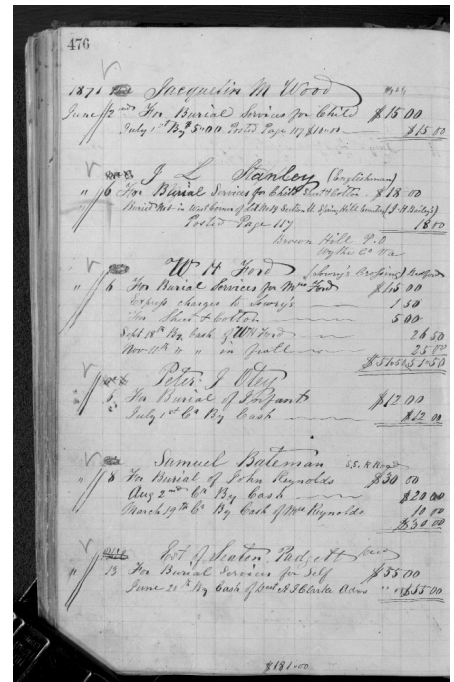 476
1871 Jacquelin M Wood
June 2nd For Burial Services for Child $15 00
July 1st By $5.00 Posted Page 117 $10.00 $15 00
J L Stanley (Englishman)
" 6 For Burial Services for Child Sheet & Cotton $18 00
Buried in West Corner of Spring Hill
Posted Page 117 18 00
Brown Hill P.O
Wythe Co Va
W H Ford (Lowry's Crossing) Bedford
" 6 For Burial Services for Mrs Ford $45 00
Express charges to Lowry's 1 50
For Sheet & Cotton 5 00
Sept 18th By Cash of W H Ford 26 50
Nov 11th " " in full 25 00
$51 50 $51 50
Peter J Otey
" 5 For Burial of Infant $12 00
July 1st Cr By Cash $12 00
Samuel Bateman S.S. R Road
" 8 For Burial of John Reynolds $30 00
Aug 2nd Cr By Cash $20 00
March 19th Cr By Cash of Mrs Reynolds 10 00
$30 00
Est of Seaton Padgett
" 13 For Burial Services for Self $55 00
June 20th By Cash of A J Clarke Adm $55 00
$181.00